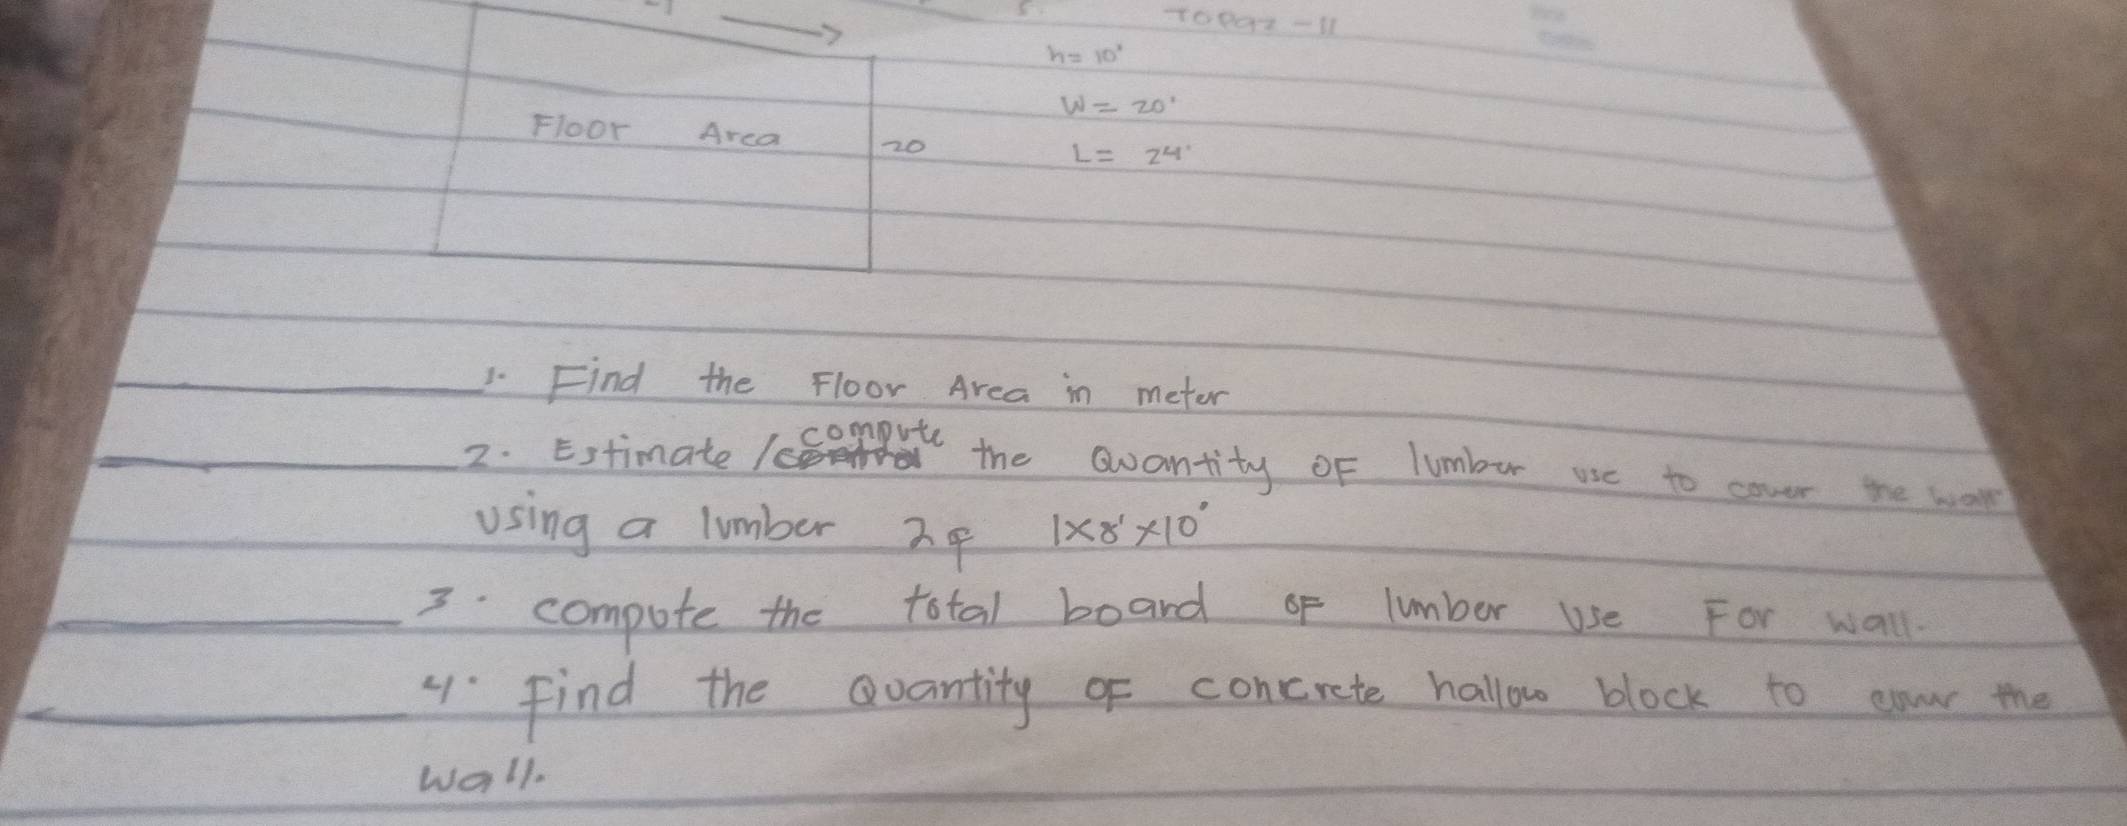 Topaz-11
h= 10'
W= 20'
Floor Area 20
L= 24'
1. Find the Floor Area in meter
compute
2. Estimate / the Quantity OF lumber use to cover the wall
using a lumber 1×8'×10'
3. compute the total board OF lumber Use For wall.
4. Find the Quantity OF concrete hallow block to the
wall.